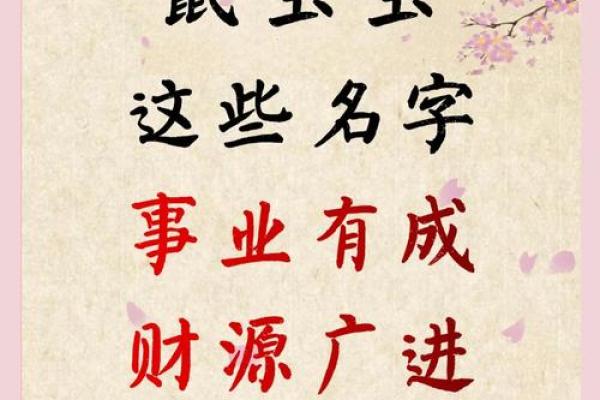 鼠宝宝
这些名字
事业有成
财源广进